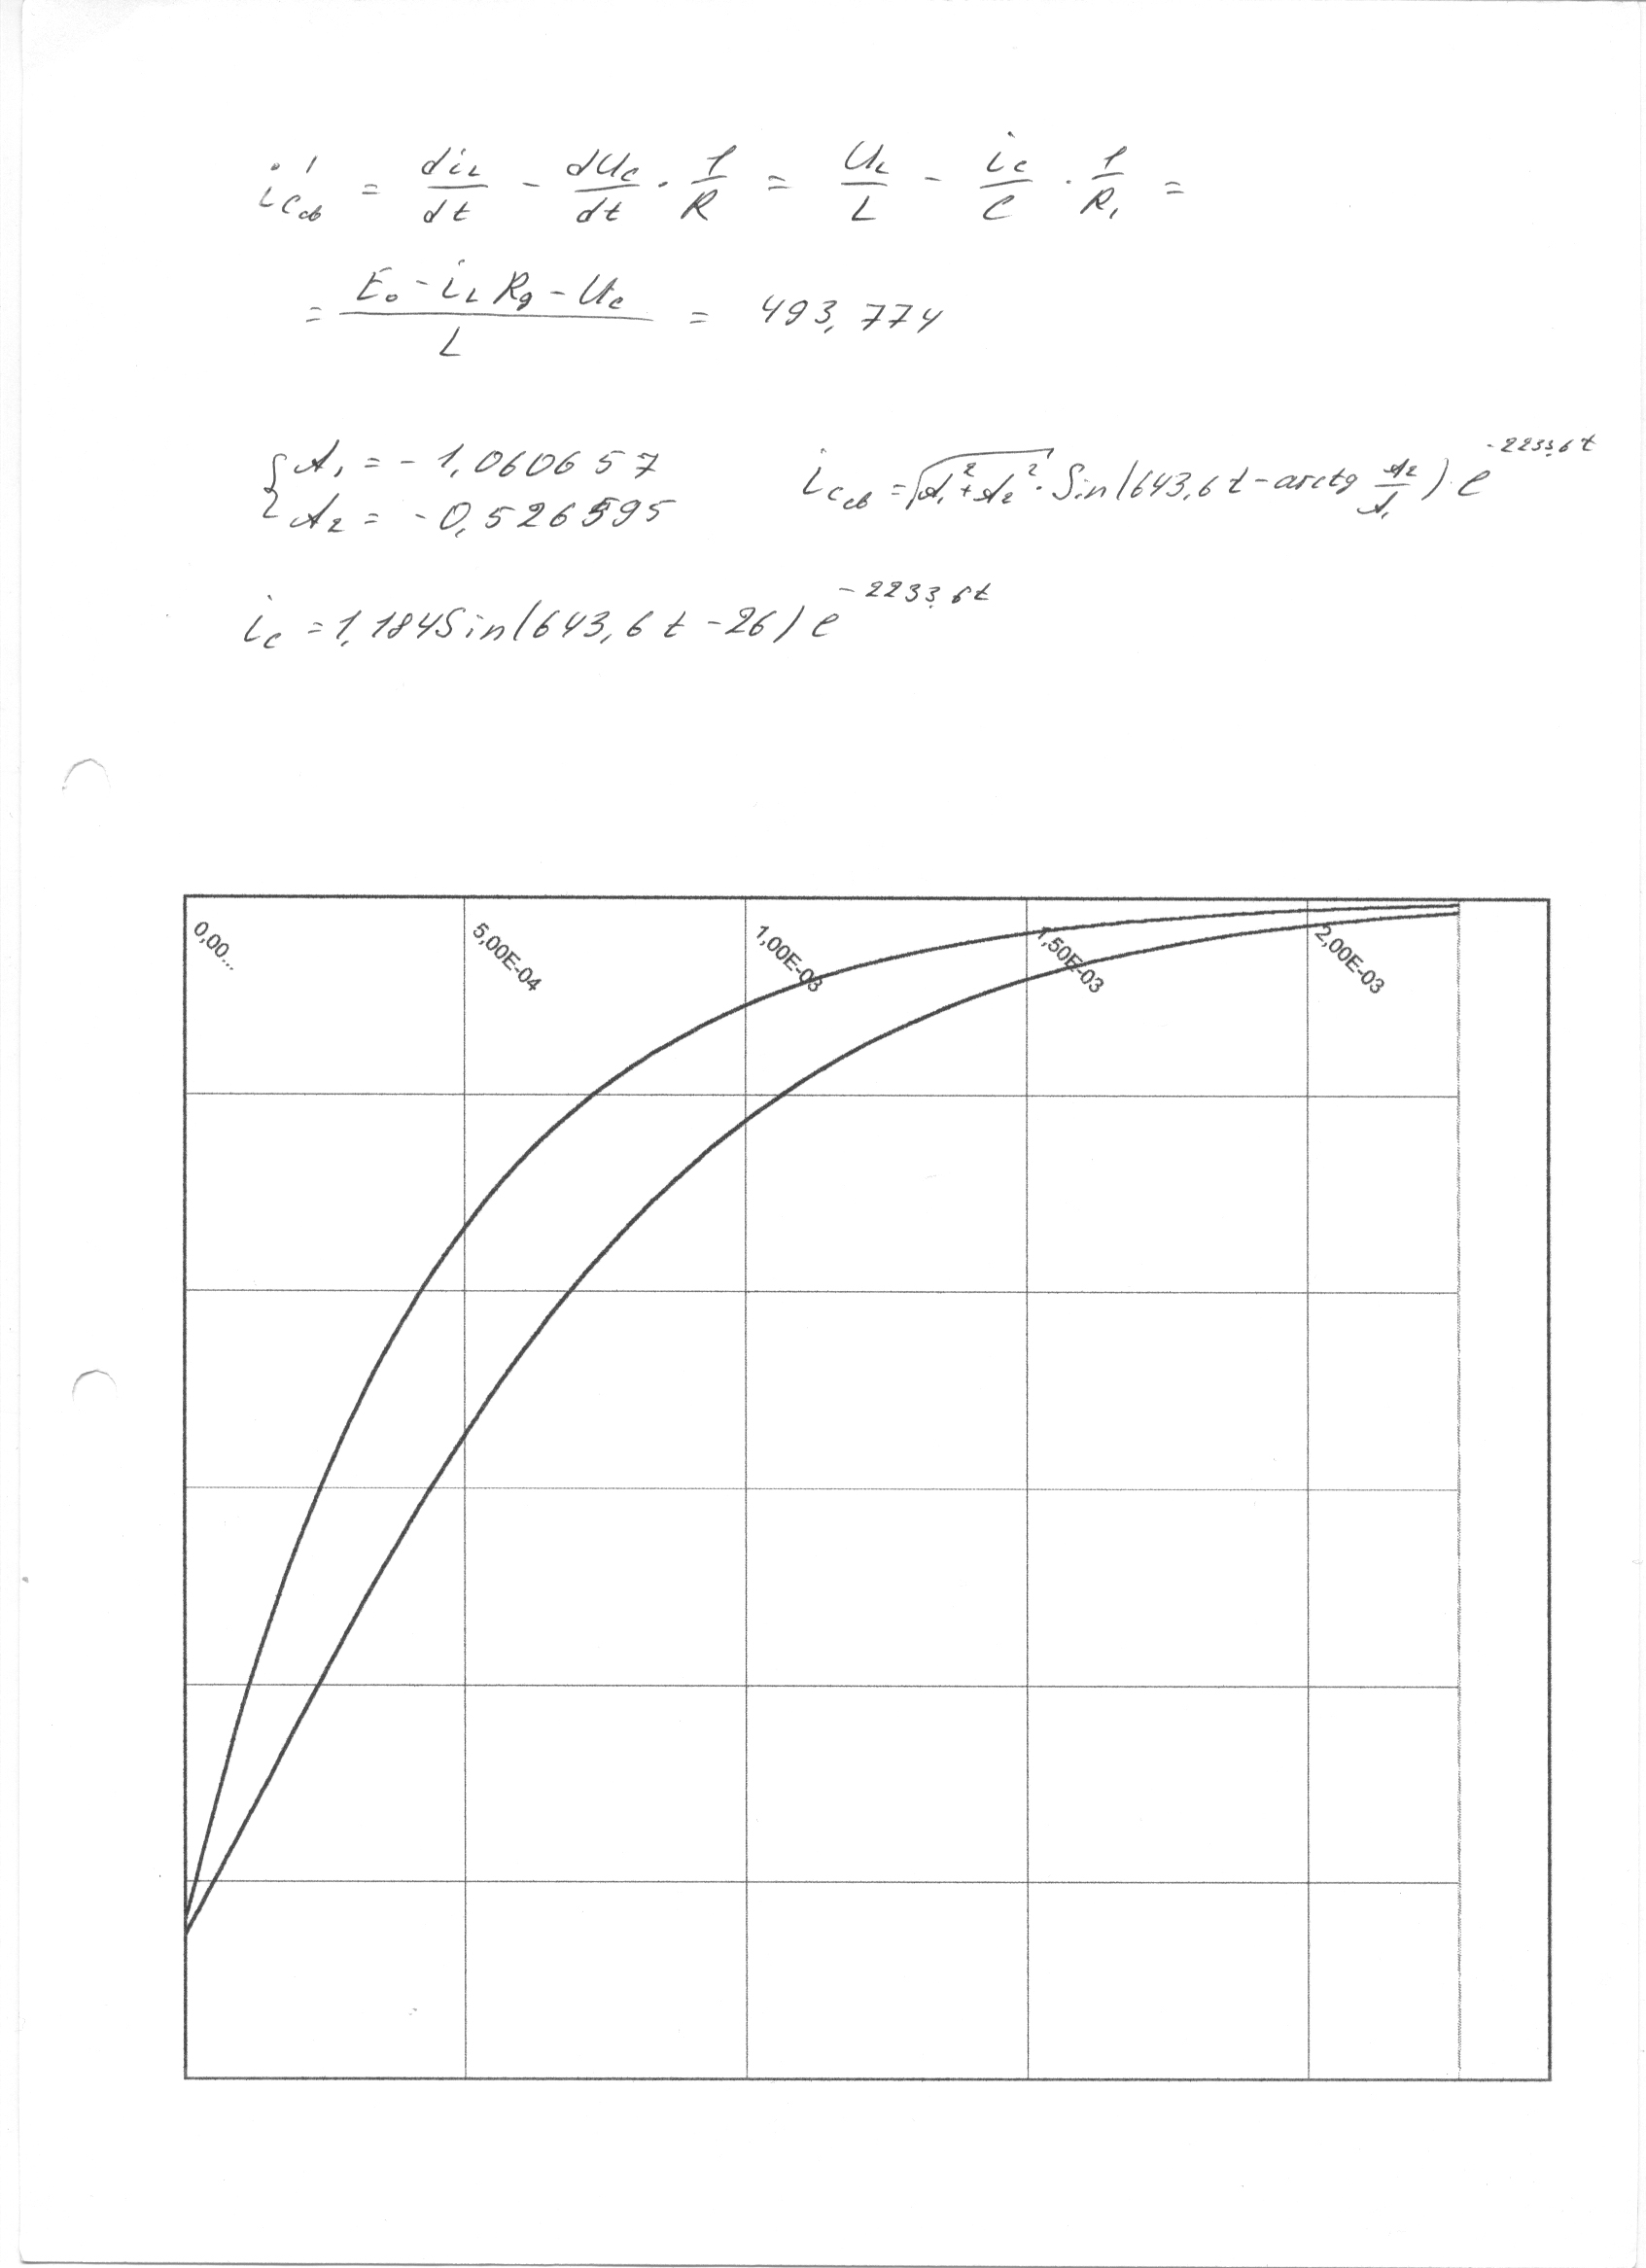 i'Cсв = diL/dt - dUc/dt · 1/R = UL/L - ic/C · 1/R1 =
= (E0 - iL Rg - Uc)/L = 493,774
{ A1 = -1,060657
{ A2 = -0,526595
iCсв = √(A1² + A2²) · Sin(643,6t - arctg A2/A1) · e^(-2233,6t)
ic = 1,184Sin(643,6t - 26) e^(-2233,6t)
0,00...
5,00E-04
1,00E-03
1,50E-03
2,00E-03